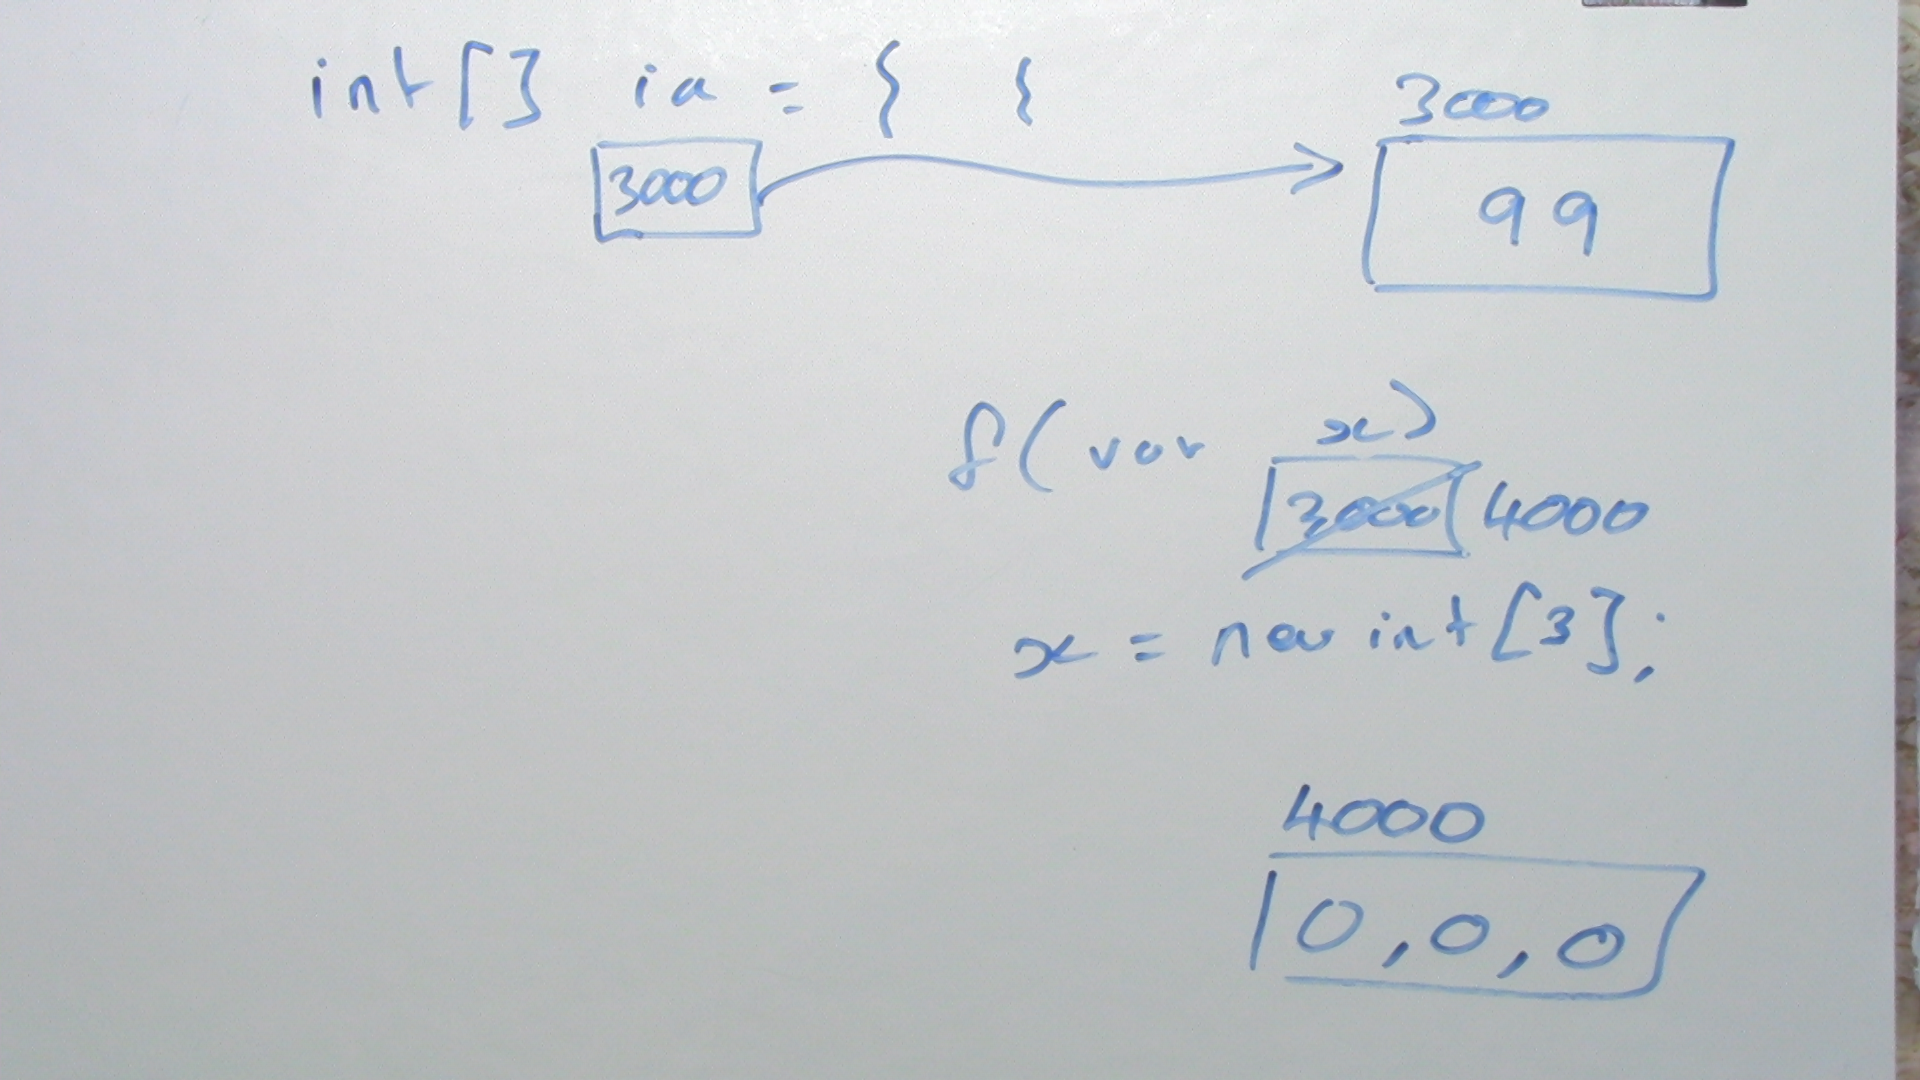 int[] ia = { {
3000
3000
99
f(var x)
3000 4000
x = new int[3];
4000
0,0,0